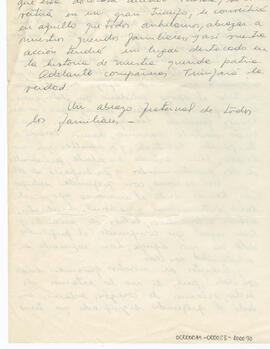 vertirá en un gran triunfo, se convertirá
en aquello que todos anhelamos, abrazar a
nuestros queridos familiares, y así nuestra
acción tendrá un lugar destacado en
la historia de nuestra querida patria.
Adelante compañeros Triunfará la
verdad.
Un abrazo fraternal de todos
los familiares.-